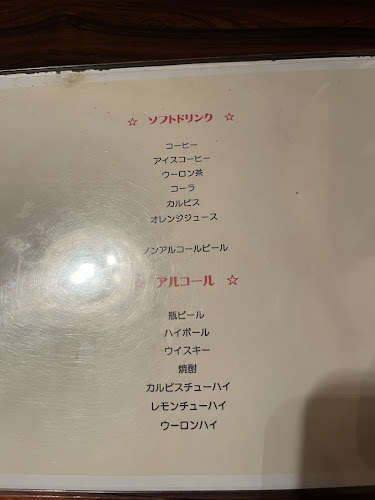 ☆ ソフトドリンク ☆
コーヒー
アイスコーヒー
ウーロン茶
コーラ
カルピス
オレンジジュース
ノンアルコールビール
☆ アルコール ☆
瓶ビール
ハイボール
ウイスキー
焼酎
カルピスチューハイ
レモンチューハイ
ウーロンハイ